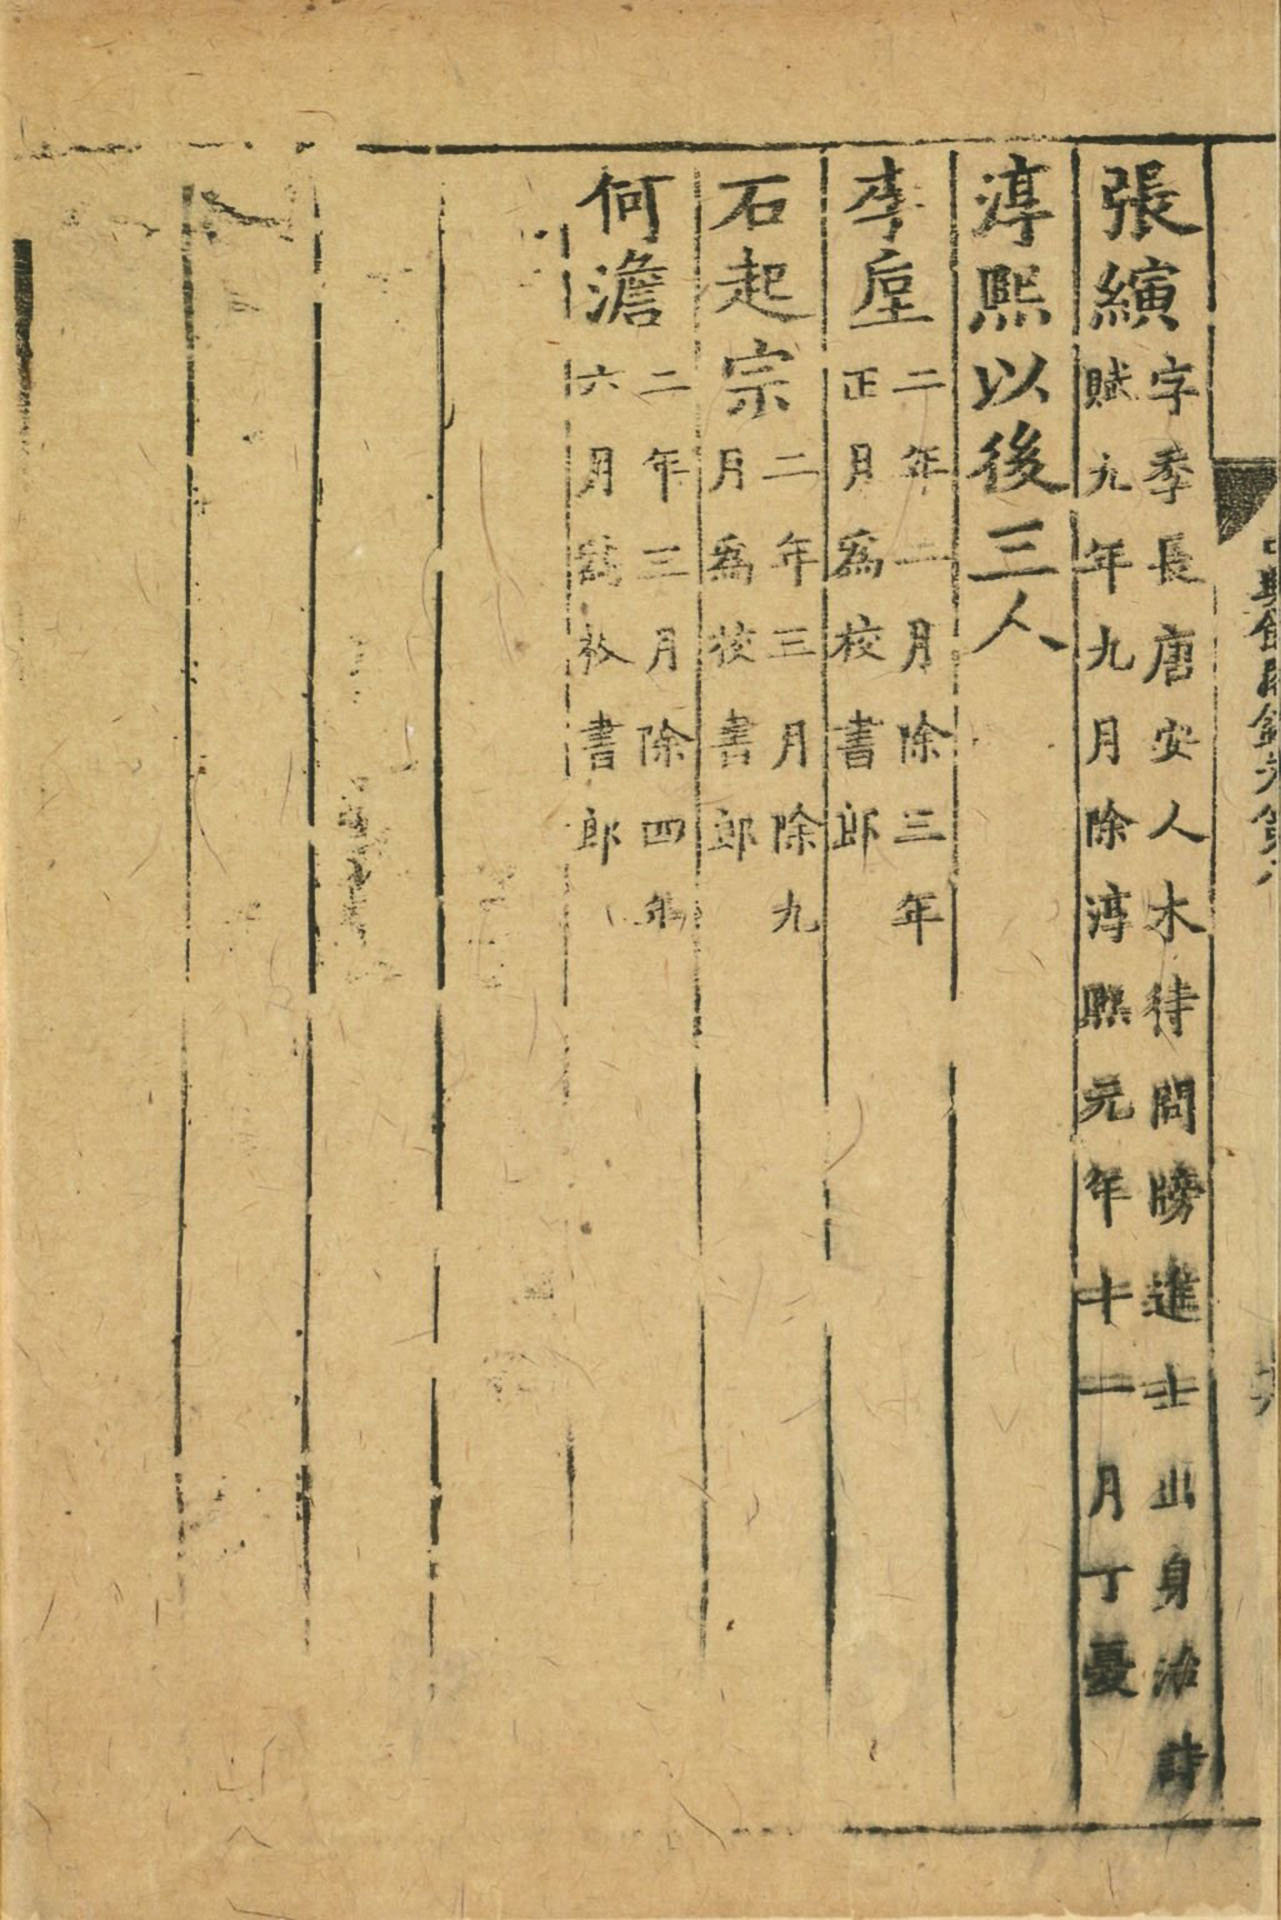 張縯字季長唐安人木待問牓進士出身治詩
賦九年九月除淳熙元年十一月丁憂
淳熙以後三人
李垕二年二月除三年
正月爲校書郎
石起宗二年三月除九
月爲校書郎
何澹二年三月除四年
六月爲校書郎